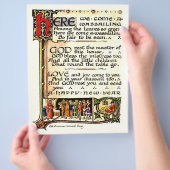 HERE
WE · COME · A
WASSAILING
Among the leaves so green
Here we come a-wassailing
So fair to be seen.
GOD rest the master of
this house,
GOD bless the mistress too,
And all the little children
That round the table go.
LOVE and joy come to you
And to your wassail too,
And God rest you and send
you all
A · HAPPY · NEW · YEAR